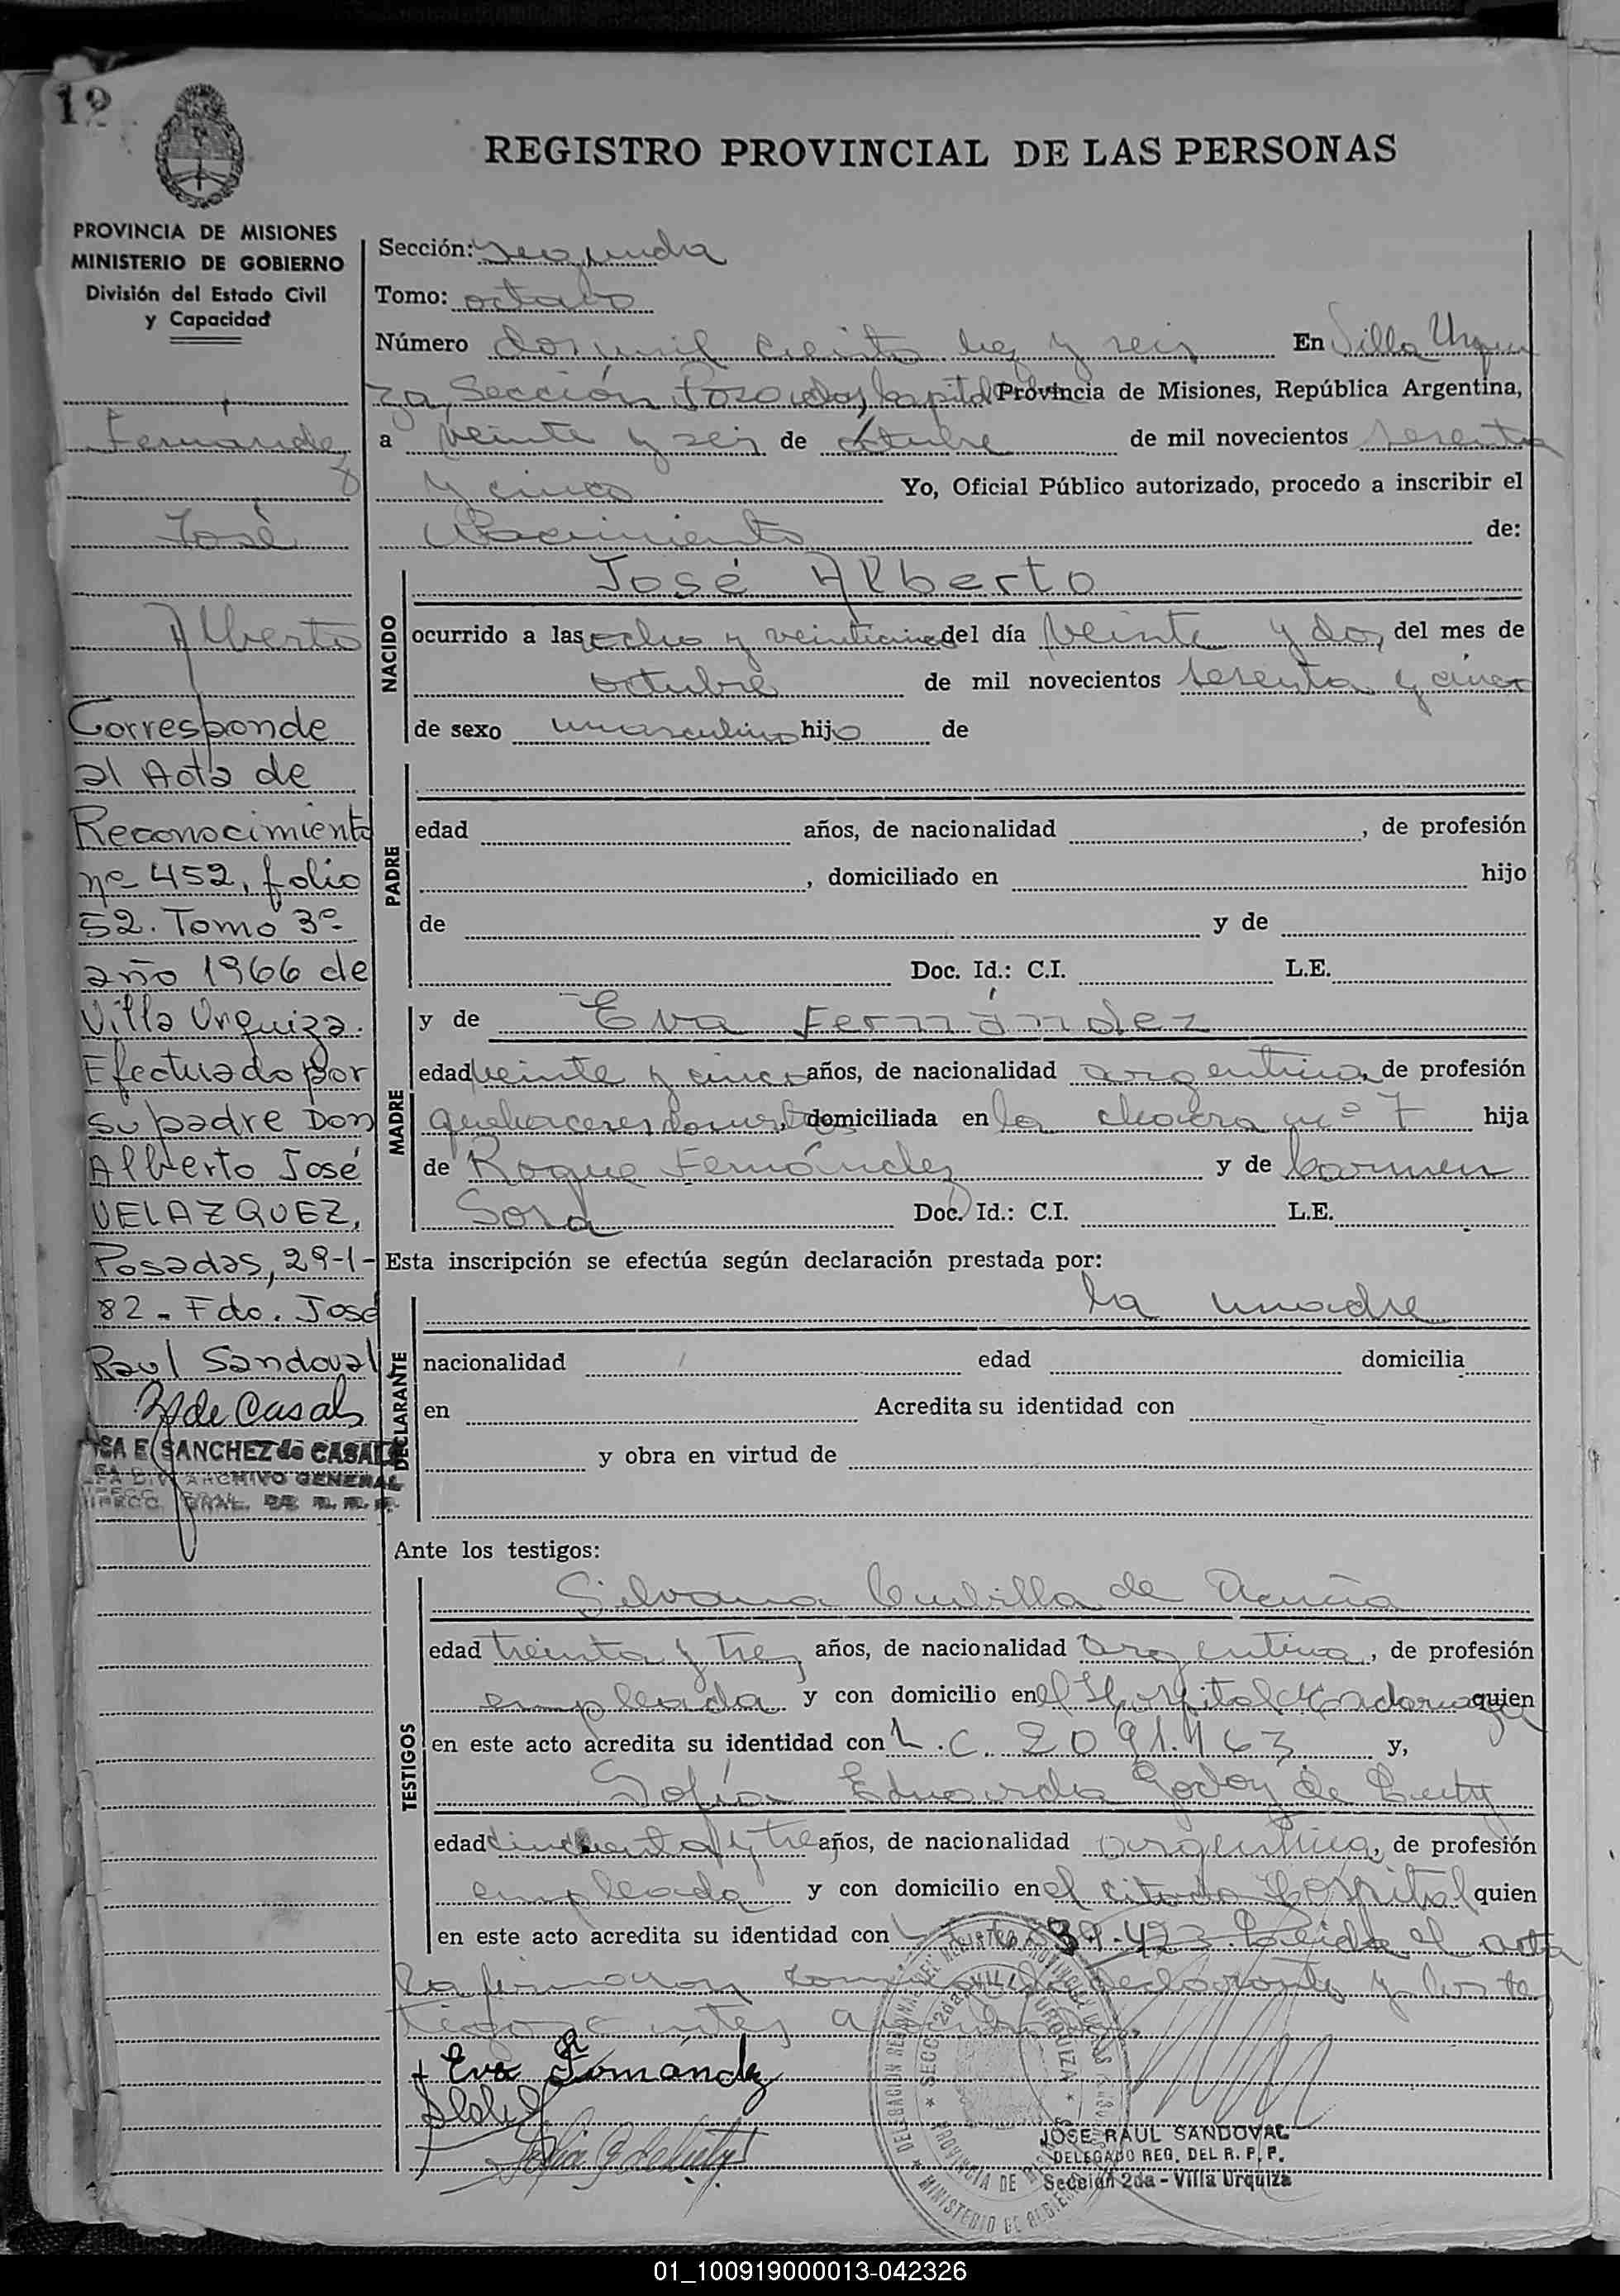 12
REGISTRO PROVINCIAL DE LAS PERSONAS
PROVINCIA DE MISIONES
MINISTERIO DE GOBIERNO
División del Estado Civil
y Capacidad
Fernandez
José
Alberto
Corresponde
al Acta de
Reconocimiento
nº 452, folio
52. Tomo 3º
año 1966 de
Villa Urquiza.
Efectuado por
su padre Don
Alberto José
VELAZQUEZ,
Posadas, 29-1-
82 - Fdo. José
Raul Sandoval
de Casals
SA E SANCHEZ de CASALS
ARCHIVO GENERAL
Sección: segunda
Tomo: octavo
Número dos mil ciento y seis En Villa Urqui
za, Sección Posadas, Capital Provincia de Misiones, República Argentina,
a veinte y seis de octubre de mil novecientos sesenta
y cinco Yo, Oficial Público autorizado, procedo a inscribir el
Nacimiento de:
NACIDO
José Alberto
ocurrido a las ocho y veinticinco del día veinte y dos, del mes de
octubre de mil novecientos sesenta y cinco
de sexo masculino hijo de
PADRE
edad años, de nacionalidad , de profesión
, domiciliado en hijo
de y de
Doc. Id.: C.I. L.E.
MADRE
y de Eva Fernández
edad veinte y cinco años, de nacionalidad argentina, de profesión
quehaceres domesticos domiciliada en la chacra nº 7 hija
de Roque Fernández y de Carmen
Sosa Doc. Id.: C.I. L.E.
Esta inscripción se efectúa según declaración prestada por:
DECLARANTE
la madre
nacionalidad edad domicilia
en Acredita su identidad con
y obra en virtud de
Ante los testigos:
TESTIGOS
Silvana Cubilla de Acuña
edad treinta y tres años, de nacionalidad argentina, de profesión
empleada y con domicilio en el Hospital Madariaga quien
en este acto acredita su identidad con L.C. 2091.463 y,
Sofía Eduarda Godoy de
edad cincuenta y tres años, de nacionalidad argentina, de profesión
empleada y con domicilio en el citado Hospital quien
en este acto acredita su identidad con Leida el acta
la firmaron declarante y los tes
tigos antes
Eva Fernández
JOSE RAUL SANDOVAL
DELEGADO REG. DEL R. P. P.
Sección 2da - Villa Urquiza
01_100919000013-042326